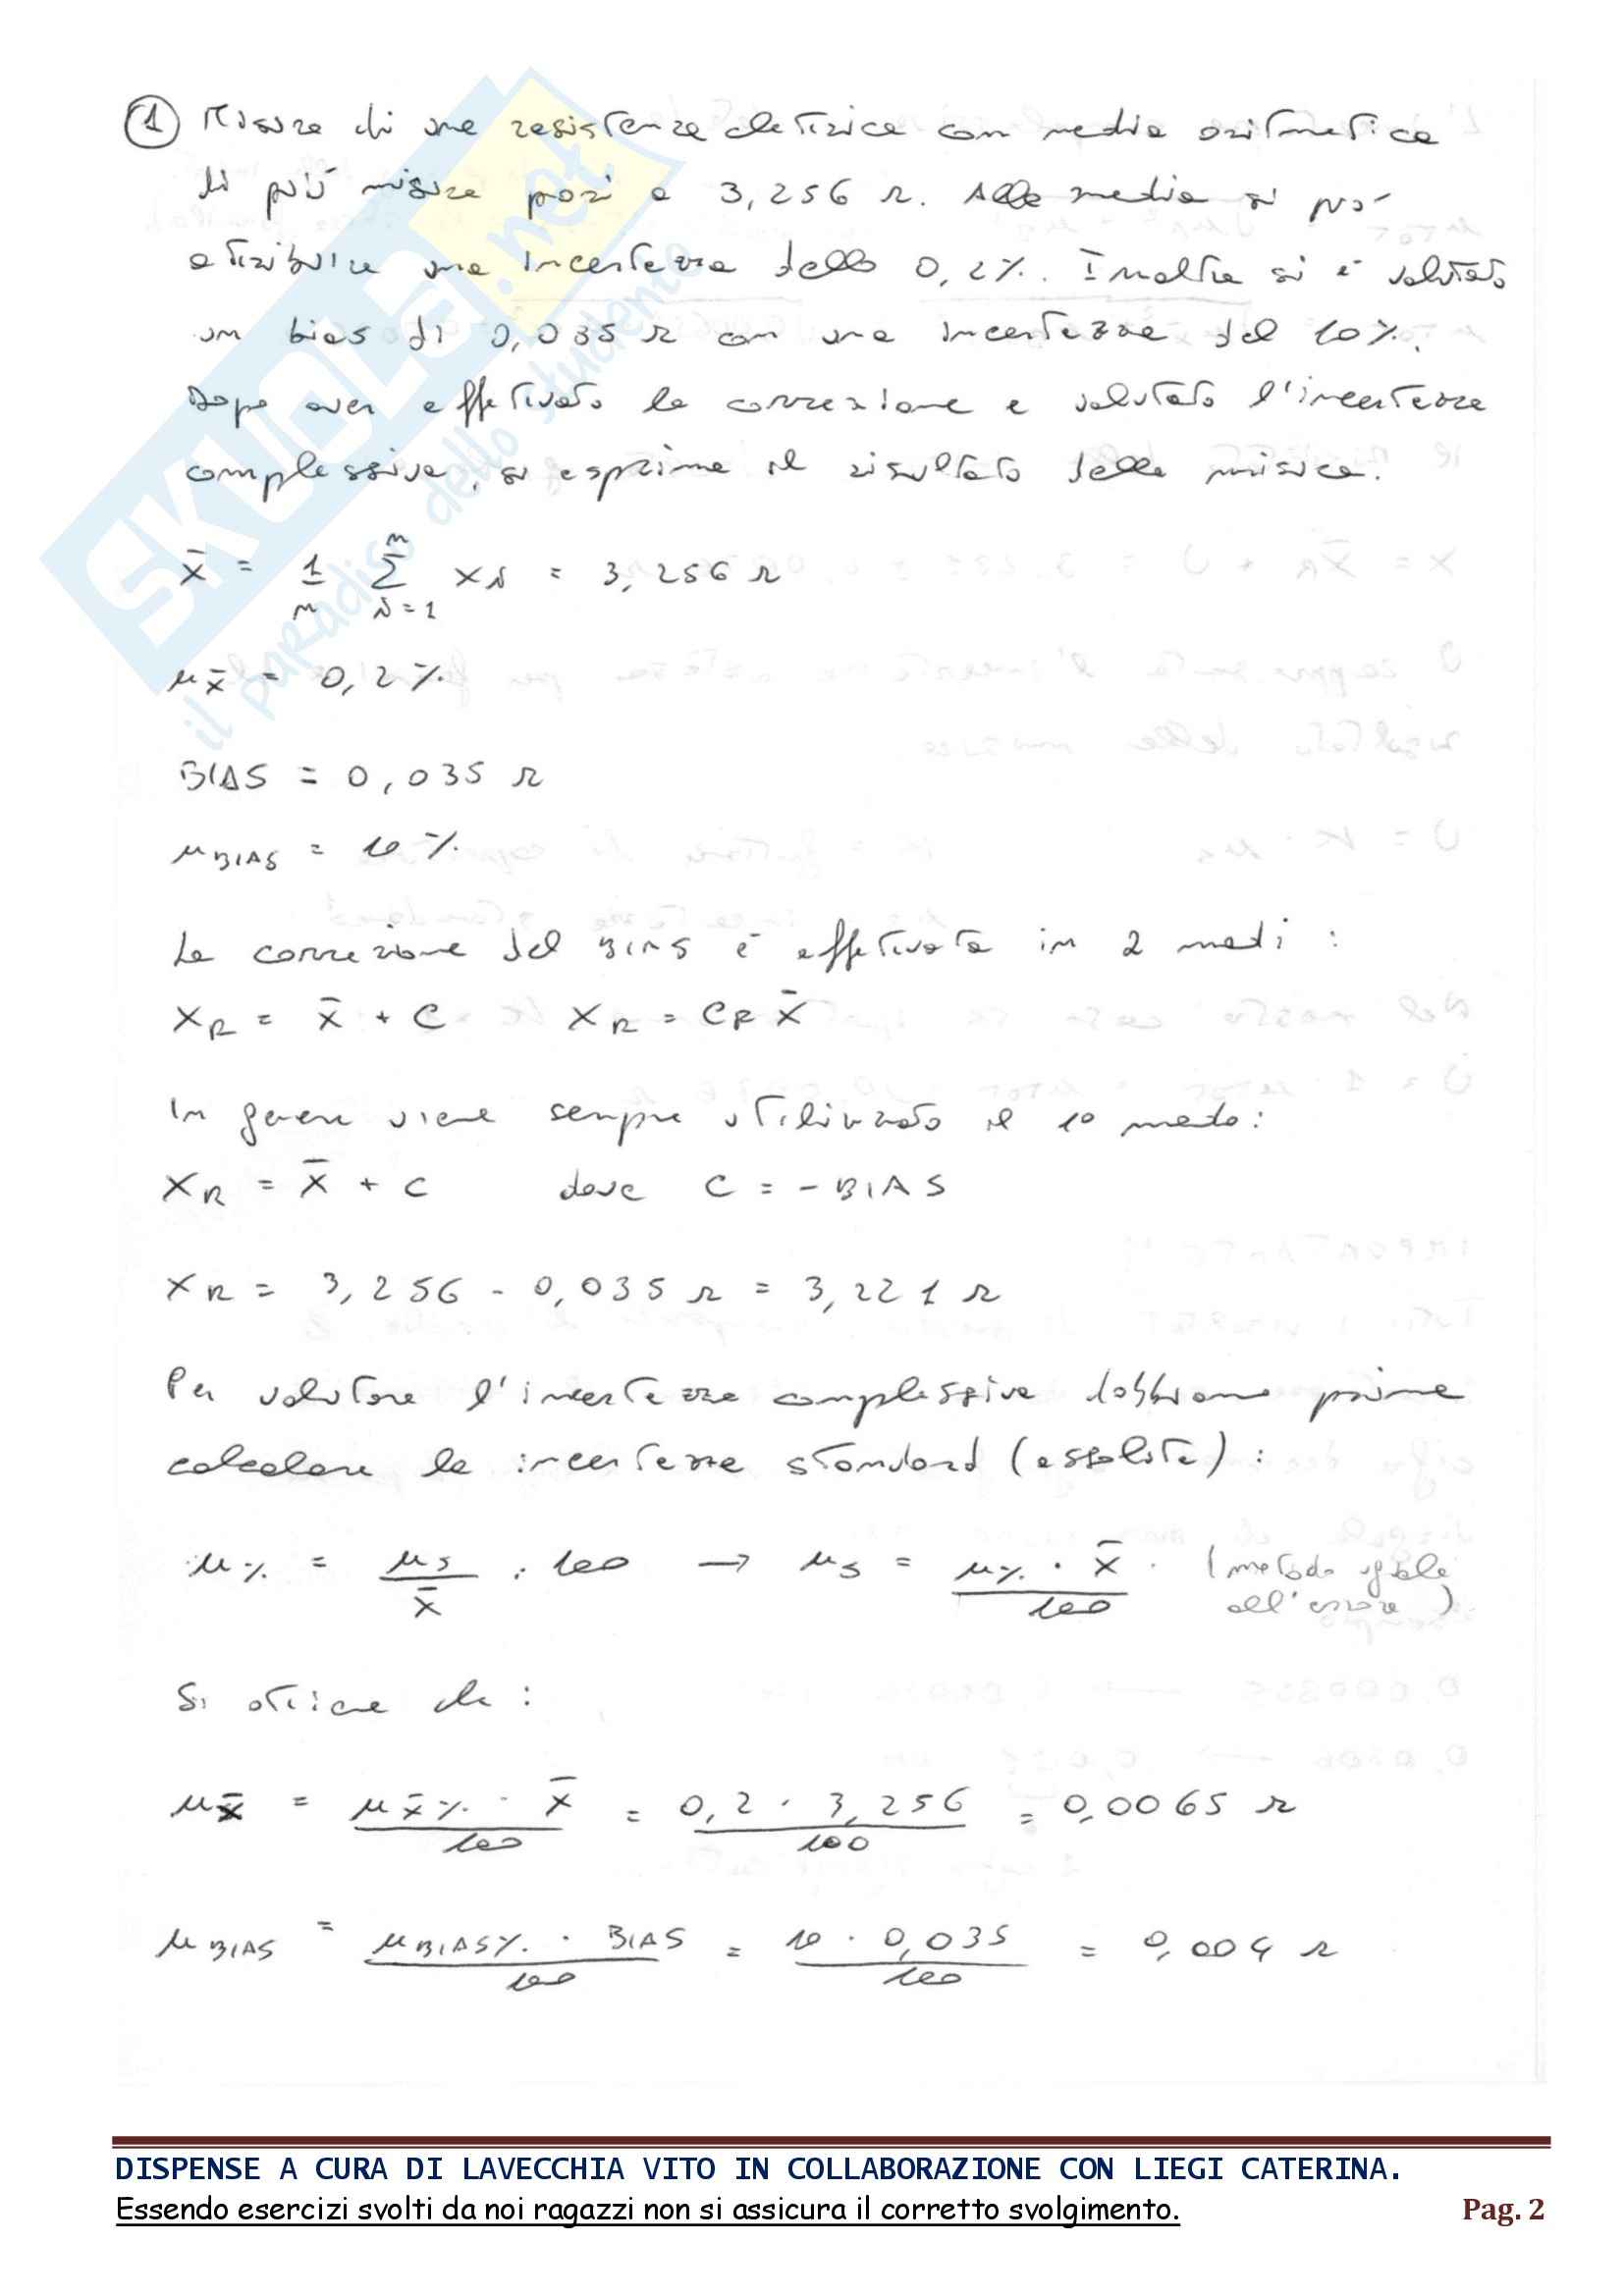 ① Misura di una resistenza elettrica con media aritmetica
di più misure pari a 3,256 Ω. Alla media si può
attribuire una incertezza dello 0,2%. Inoltre si è valutato
un bias di 0,035 Ω con una incertezza del 10%.
Dopo aver effettuato la correzione e valutato l'incertezza
complessiva, si esprima il risultato della misura.
x̄ = 1/n Σ_{i=1}^{n} xi = 3,256 Ω
μx̄ = 0,2%
BIAS = 0,035 Ω
μBIAS = 10%
La correzione del BIAS è effettuata in 2 modi :
XR = x̄ + C    XR = CR x̄
In genere viene sempre utilizzato il 1° modo:
XR = x̄ + C    dove C = - BIAS
XR = 3,256 - 0,035 Ω = 3,221 Ω
Per valutare l'incertezza complessiva dobbiamo prima
calcolare le incertezze standard (assolute) :
μ% = μs/x̄ · 100 → μs = μ% · x̄/100 . (metodo uguale
all'errore)
Si ottiene che :
μx̄ = μx̄% · x̄/100 = 0,2 · 3,256/100 = 0,0065 Ω
μBIAS = μBIAS% · BIAS/100 = 10 · 0,035/100 = 0,004 Ω
SKUOLA.net
il paradiso dello studente
DISPENSE A CURA DI LAVECCHIA VITO IN COLLABORAZIONE CON LIEGI CATERINA.
Essendo esercizi svolti da noi ragazzi non si assicura il corretto svolgimento. Pag. 2